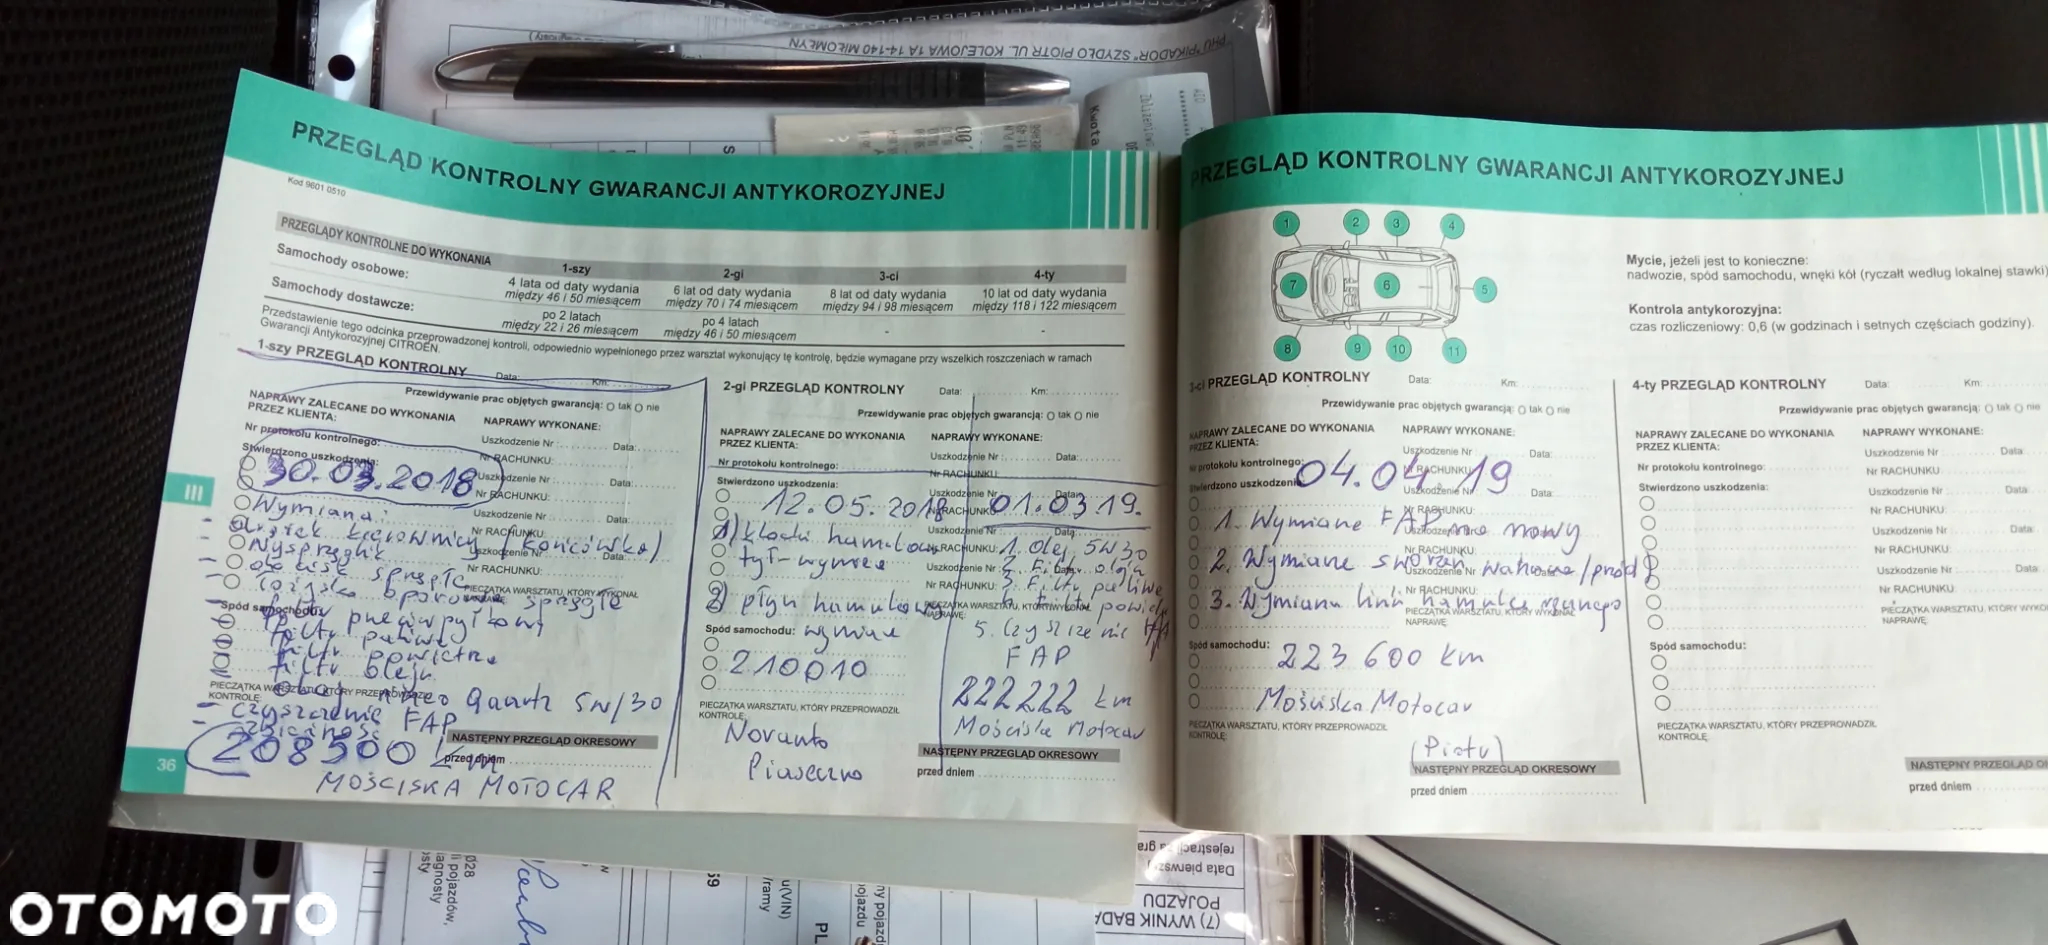 PHU "PIKADOR" SZYDŁO PIOTR UL. KOLEJOWA 1A 14-140 MIŁOMŁYN
Kwota
PRZEGLĄD KONTROLNY GWARANCJI ANTYKOROZYJNEJ
Kod 9601 0510
PRZEGLĄDY KONTROLNE DO WYKONANIA
1-szy 2-gi 3-ci 4-ty
Samochody osobowe:
4 lata od daty wydania 6 lat od daty wydania 8 lat od daty wydania 10 lat od daty wydania
między 46 i 50 miesiącem między 70 i 74 miesiącem między 94 i 98 miesiącem między 118 i 122 miesiącem
Samochody dostawcze:
po 2 latach po 4 latach - -
między 22 i 26 miesiącem między 46 i 50 miesiącem
Przedstawienie tego odcinka przeprowadzonej kontroli, odpowiednio wypełnionego przez warsztat wykonujący tę kontrolę, będzie wymagane przy wszelkich roszczeniach w ramach
Gwarancji Antykorozyjnej CITROËN.
1-szy PRZEGLĄD KONTROLNY Data: Km:
Przewidywanie prac objętych gwarancją: tak nie
NAPRAWY ZALECANE DO WYKONANIA
PRZEZ KLIENTA:
NAPRAWY WYKONANE:
Nr protokołu kontrolnego:
Uszkodzenie Nr Data:
Stwierdzono uszkodzenia:
Nr RACHUNKU:
30.03.2018
Uszkodzenie Nr Data:
Nr RACHUNKU:
Wymiana:
Uszkodzenie Nr Data:
Nr RACHUNKU:
- drążek kierownicy (końcówka)
Uszkodzenie Nr Data:
- Wysprzęglik
Nr RACHUNKU:
- docisk sprzęgła
- łożysko oporowe sprzęgła
PIECZĄTKA WARSZTATU, KTÓRY WYKONAŁ
NAPRAWĘ:
Spód samochodu:
filtr przeciwpyłkowy
filtr paliwa
filtr powietrza
filtr oleju
PIECZĄTKA WARSZTATU, KTÓRY PRZEPROWADZIŁ
KONTROLĘ:
olej ineo quartz 5W/30
- czyszczenie FAP
208500 km
NASTĘPNY PRZEGLĄD OKRESOWY
przed dniem
MOŚCISKA MOTOCAR
III
36
2-gi PRZEGLĄD KONTROLNY Data: Km:
Przewidywanie prac objętych gwarancją: tak nie
NAPRAWY ZALECANE DO WYKONANIA
PRZEZ KLIENTA:
NAPRAWY WYKONANE:
Uszkodzenie Nr Data:
Nr protokołu kontrolnego:
Nr RACHUNKU:
Stwierdzono uszkodzenia:
Uszkodzenie Nr Data:
12.05.2018
Nr RACHUNKU:
Uszkodzenie Nr Data:
1) klocki hamulcowe
Nr RACHUNKU:
tył-wymiana
Uszkodzenie Nr Data:
Nr RACHUNKU:
2) płyn hamulcowy
PIECZĄTKA WARSZTATU, KTÓRY WYKONAŁ
NAPRAWĘ:
Spód samochodu:
wymiana
210010
PIECZĄTKA WARSZTATU, KTÓRY PRZEPROWADZIŁ
KONTROLĘ:
Novauto
Piaseczno
01.03.19.
1. Olej 5W30
2. Filtr oleju
3. Filtr paliwa
4. filtr powietrza
5. Czyszczenie
FAP
222222 km
Mościska Motocar
NASTĘPNY PRZEGLĄD OKRESOWY
przed dniem
PRZEGLĄD KONTROLNY GWARANCJI ANTYKOROZYJNEJ
1 2 3 4
7 6 5
8 9 10 11
Mycie, jeżeli jest to konieczne:
nadwozie, spód samochodu, wnęki kół (ryczałt według lokalnej stawki)
Kontrola antykorozyjna:
czas rozliczeniowy: 0,6 (w godzinach i setnych częściach godziny).
3-ci PRZEGLĄD KONTROLNY Data: Km:
Przewidywanie prac objętych gwarancją: tak nie
NAPRAWY ZALECANE DO WYKONANIA
PRZEZ KLIENTA:
NAPRAWY WYKONANE:
Uszkodzenie Nr Data:
Nr protokołu kontrolnego:
Nr RACHUNKU:
Stwierdzono uszkodzenia:
Uszkodzenie Nr Data:
04.04.19
Nr RACHUNKU:
1. Wymiana FAP na nowy
Uszkodzenie Nr Data:
Nr RACHUNKU:
2. Wymiana sworzeń wahacza/przód P
Uszkodzenie Nr Data:
Nr RACHUNKU:
3. Wymiana linki hamulca ręcznego
PIECZĄTKA WARSZTATU, KTÓRY WYKONAŁ
NAPRAWĘ:
Spód samochodu:
223600 km
Mościska Motocar
PIECZĄTKA WARSZTATU, KTÓRY PRZEPROWADZIŁ
KONTROLĘ:
(Piotr)
NASTĘPNY PRZEGLĄD OKRESOWY
przed dniem
4-ty PRZEGLĄD KONTROLNY Data: Km:
Przewidywanie prac objętych gwarancją: tak nie
NAPRAWY ZALECANE DO WYKONANIA
PRZEZ KLIENTA:
NAPRAWY WYKONANE:
Uszkodzenie Nr Data:
Nr protokołu kontrolnego:
Nr RACHUNKU:
Stwierdzono uszkodzenia:
Uszkodzenie Nr Data:
Nr RACHUNKU:
Uszkodzenie Nr Data:
Nr RACHUNKU:
Uszkodzenie Nr Data:
Nr RACHUNKU:
PIECZĄTKA WARSZTATU, KTÓRY
NAPRAWĘ:
Spód samochodu:
PIECZĄTKA WARSZTATU, KTÓRY PRZEPROWADZIŁ
KONTROLĘ:
NASTĘPNY PRZEGLĄD
przed dniem
(7) WYNIK
POJAZDU
OTOMOTO